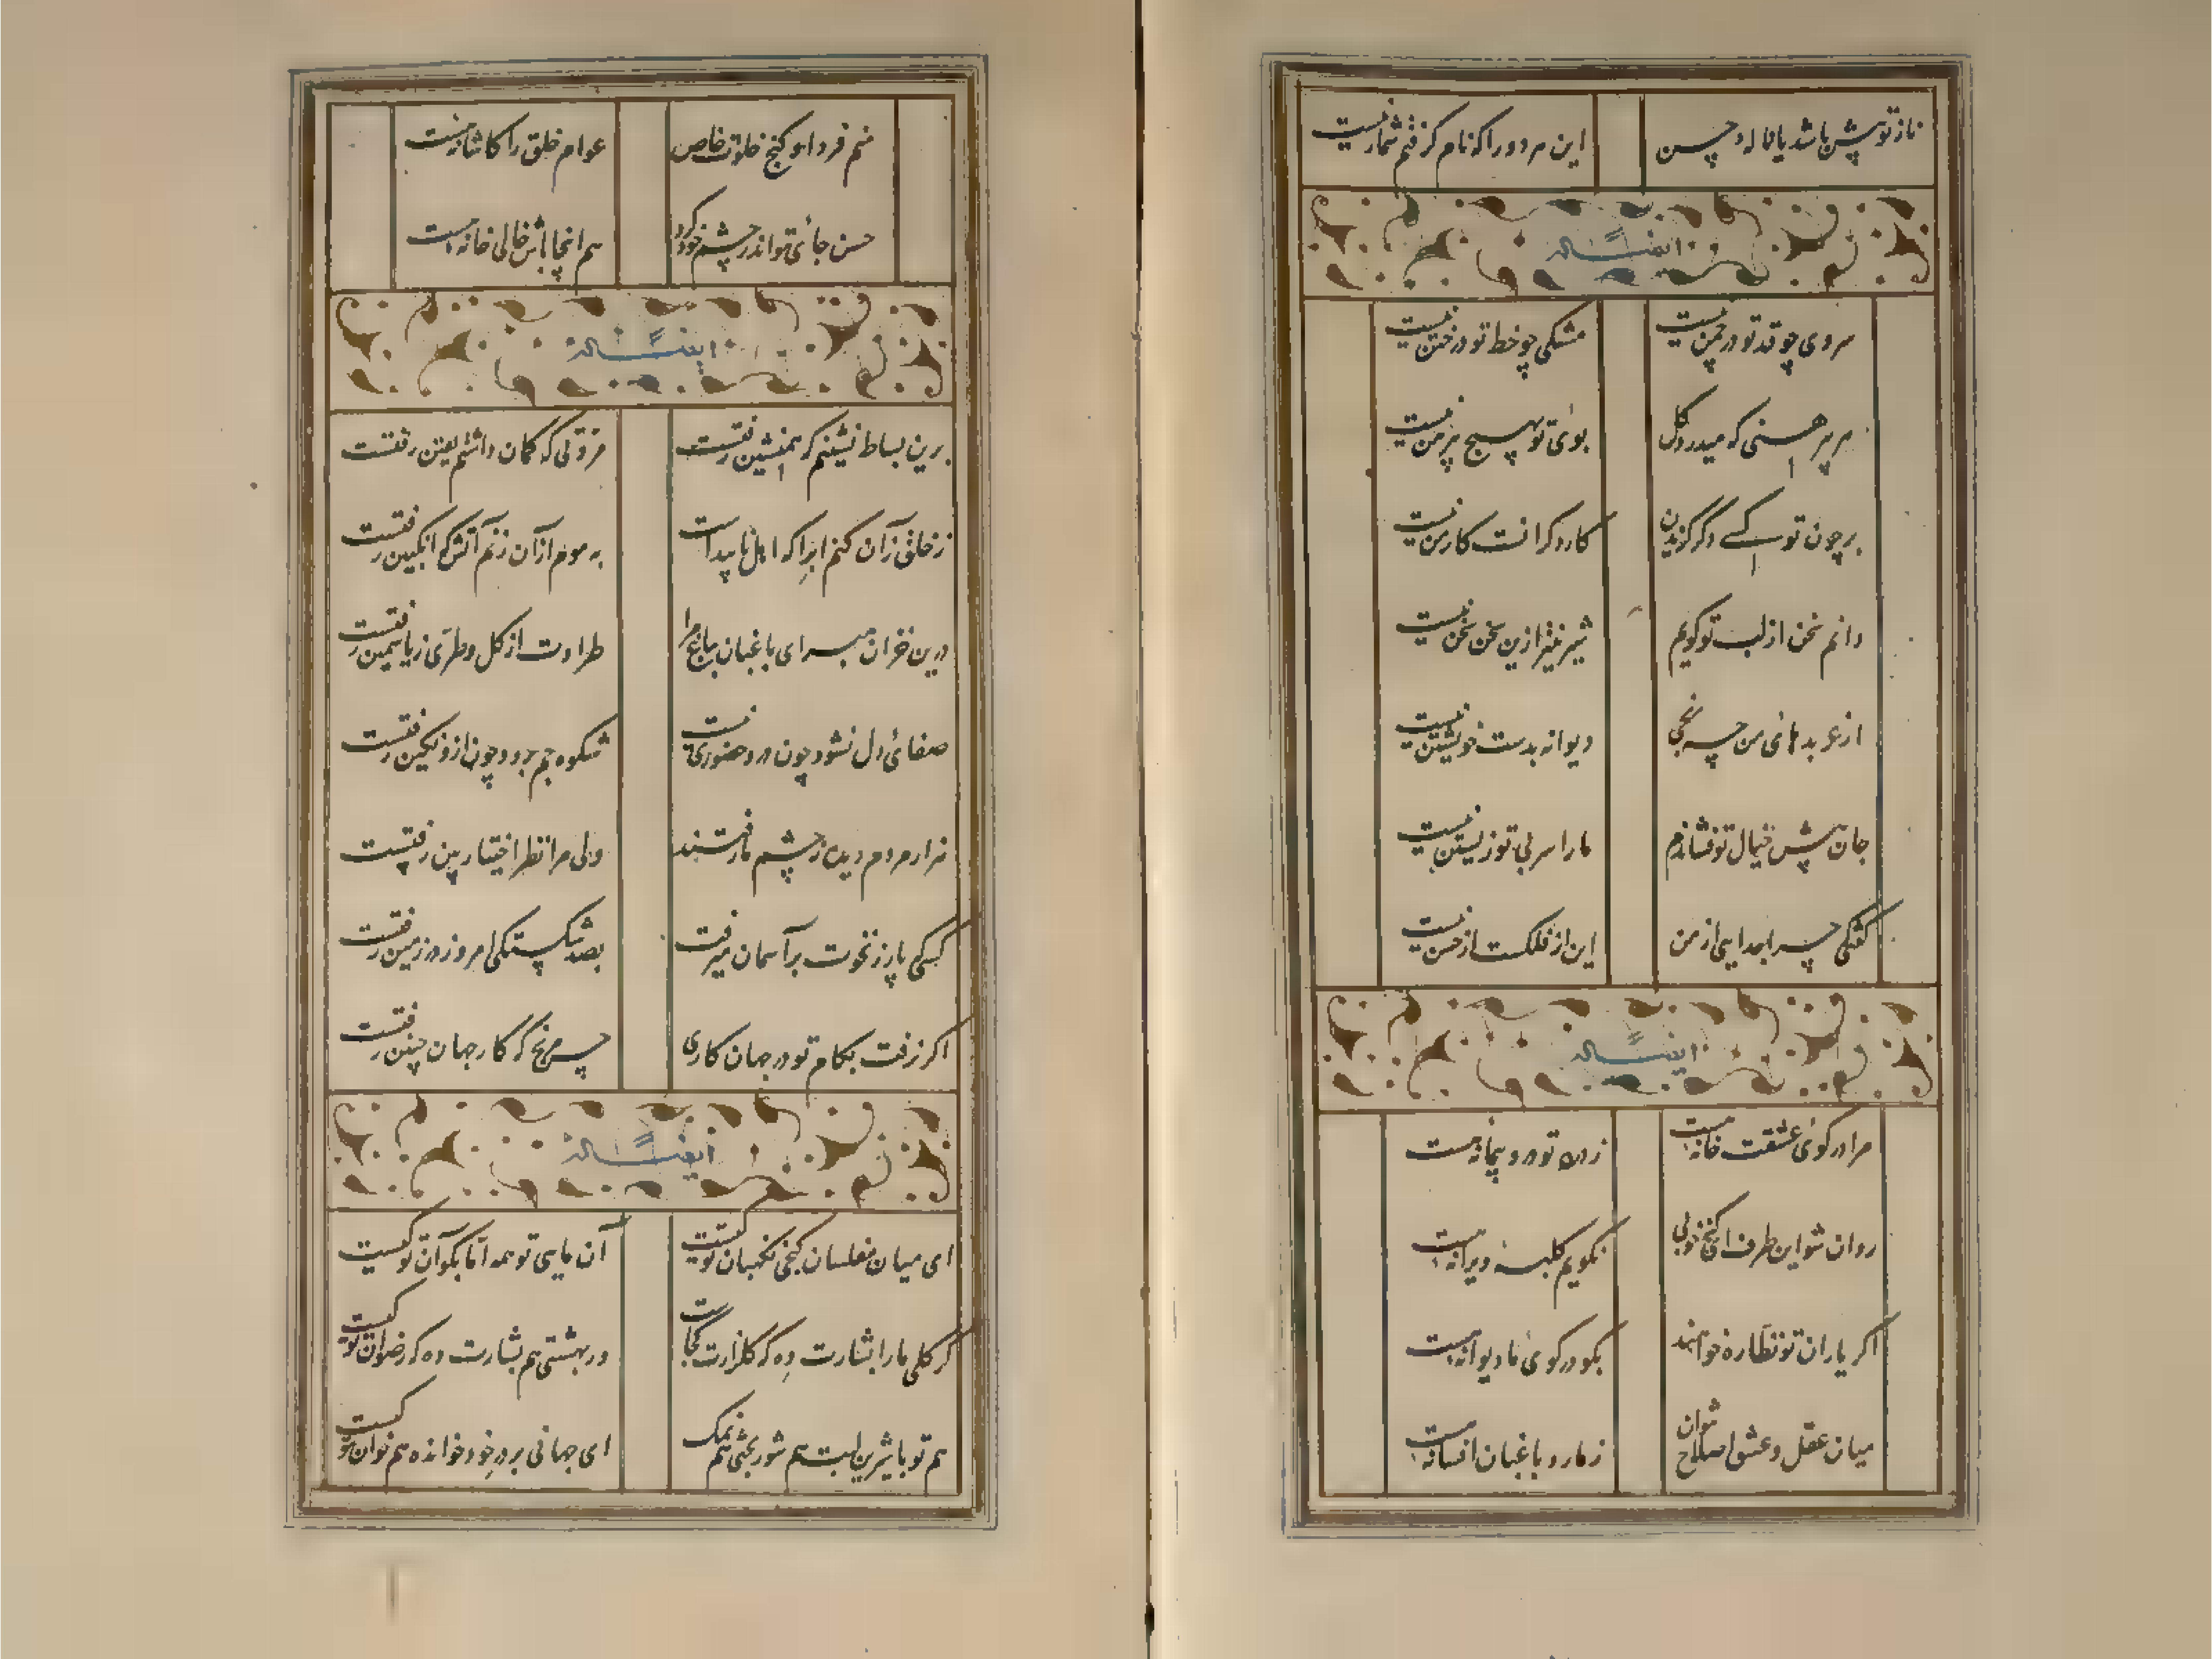 ناز تو بیش باشد یا ناله حسن
این مر دو را که نام گرفتم شمار نیست
ایضاً له
سروی چو قد تو در چمن نیست
مشکی چو خط تو در ختن نیست
هر پیرهنی که میدرد گل
بوی تو بهیچ پیرهن نیست
بر چون تو کسی دگر گزیدن
کار دگرانست کار من نیست
دانم سخن از لب تو گویم
شیرینتر ازین سخن سخن نیست
از عربدهای من چه رنجی
دیوانه بدست خویشتن نیست
جان پیش خیال تو فشانم
ما را سر بی تو زیستن نیست
گفتی چرا جدایی از من
این از فلکست از حسن نیست
ایضاً له
مرا در کوی عشقت خانه است
ز درد تو دو پیمانه است
روان شو این طرف ای گنج خوبی
نگویم کلبه ویرانه است
اگر یاران تو نظاره خواهند
بگو در کوی ما دیوانه است
میان عقل و عشق اصلاح نتوان
ز مار و باغبان افسانه است
منم فردا و کنج خلوت خاص
عوام خلق را کاشانه است
حسن جای تو اندر چشم خود کرد
هم اینجا باش خالی خانه است
ایضاً له
برین بساط نشینم که همنشین رفتست
قزقلی که گمان داشتم یقین رفتست
ز خلق زان کنم ابرا که اهل ناپیداست
به موم ازان زنم آتش که انگبین رفتست
درین خزان مبر ای باغبان بباغ مرا
طراوت از گل و طری ز یاسمین رفتست
صفای دل نشود چون درو حضوری نیست
شکوه جم برود چون ازو نگین رفتست
هزار مردم دیده ز چشم ما رفتند
ولی مرا نظر اختیار بین رفتست
کسی که پار ز نخوت بر آسمان میرفت
بصد شکستگی امروز در زمین رفتست
اگر نرفت بکام تو در جهان کاری
حسن مرنج که کار جهان چنین رفتست
ایضاً له
ای میان مفلسان گنجی نگهبان تو کیست
آن مایی تو همه اما بگو آن تو کیست
گر گلی ما را بشارت ده که گلزارت کجاست
ور بهشتی هم بشارت ده که رضوان تو کیست
هم تو با شیرین لبت هم شور بختی هم نمک
ای جهانی بر در خود خوانده هم خوان تو کیست